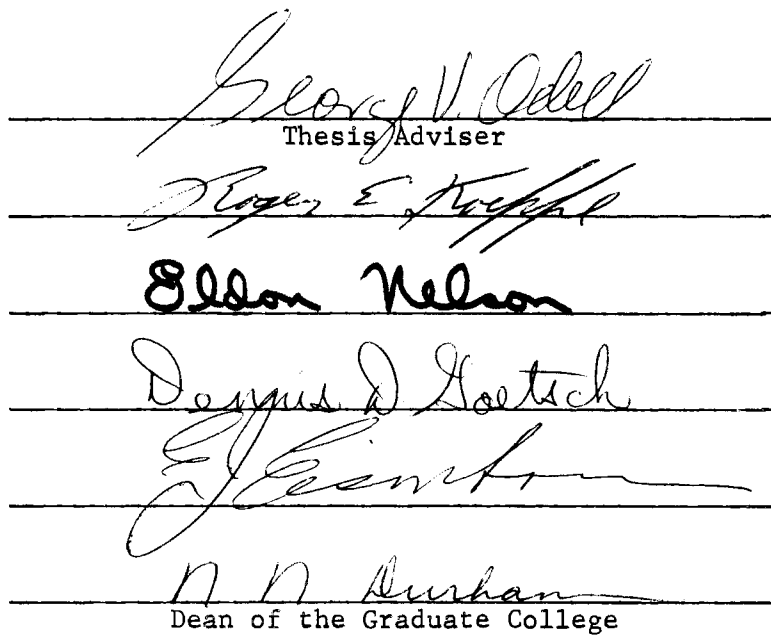 George V. Odell
Thesis Adviser
Roger E. Koeppe
Eldon Nelson
Dennis D Goetsch
EJ
N N Durham
Dean of the Graduate College